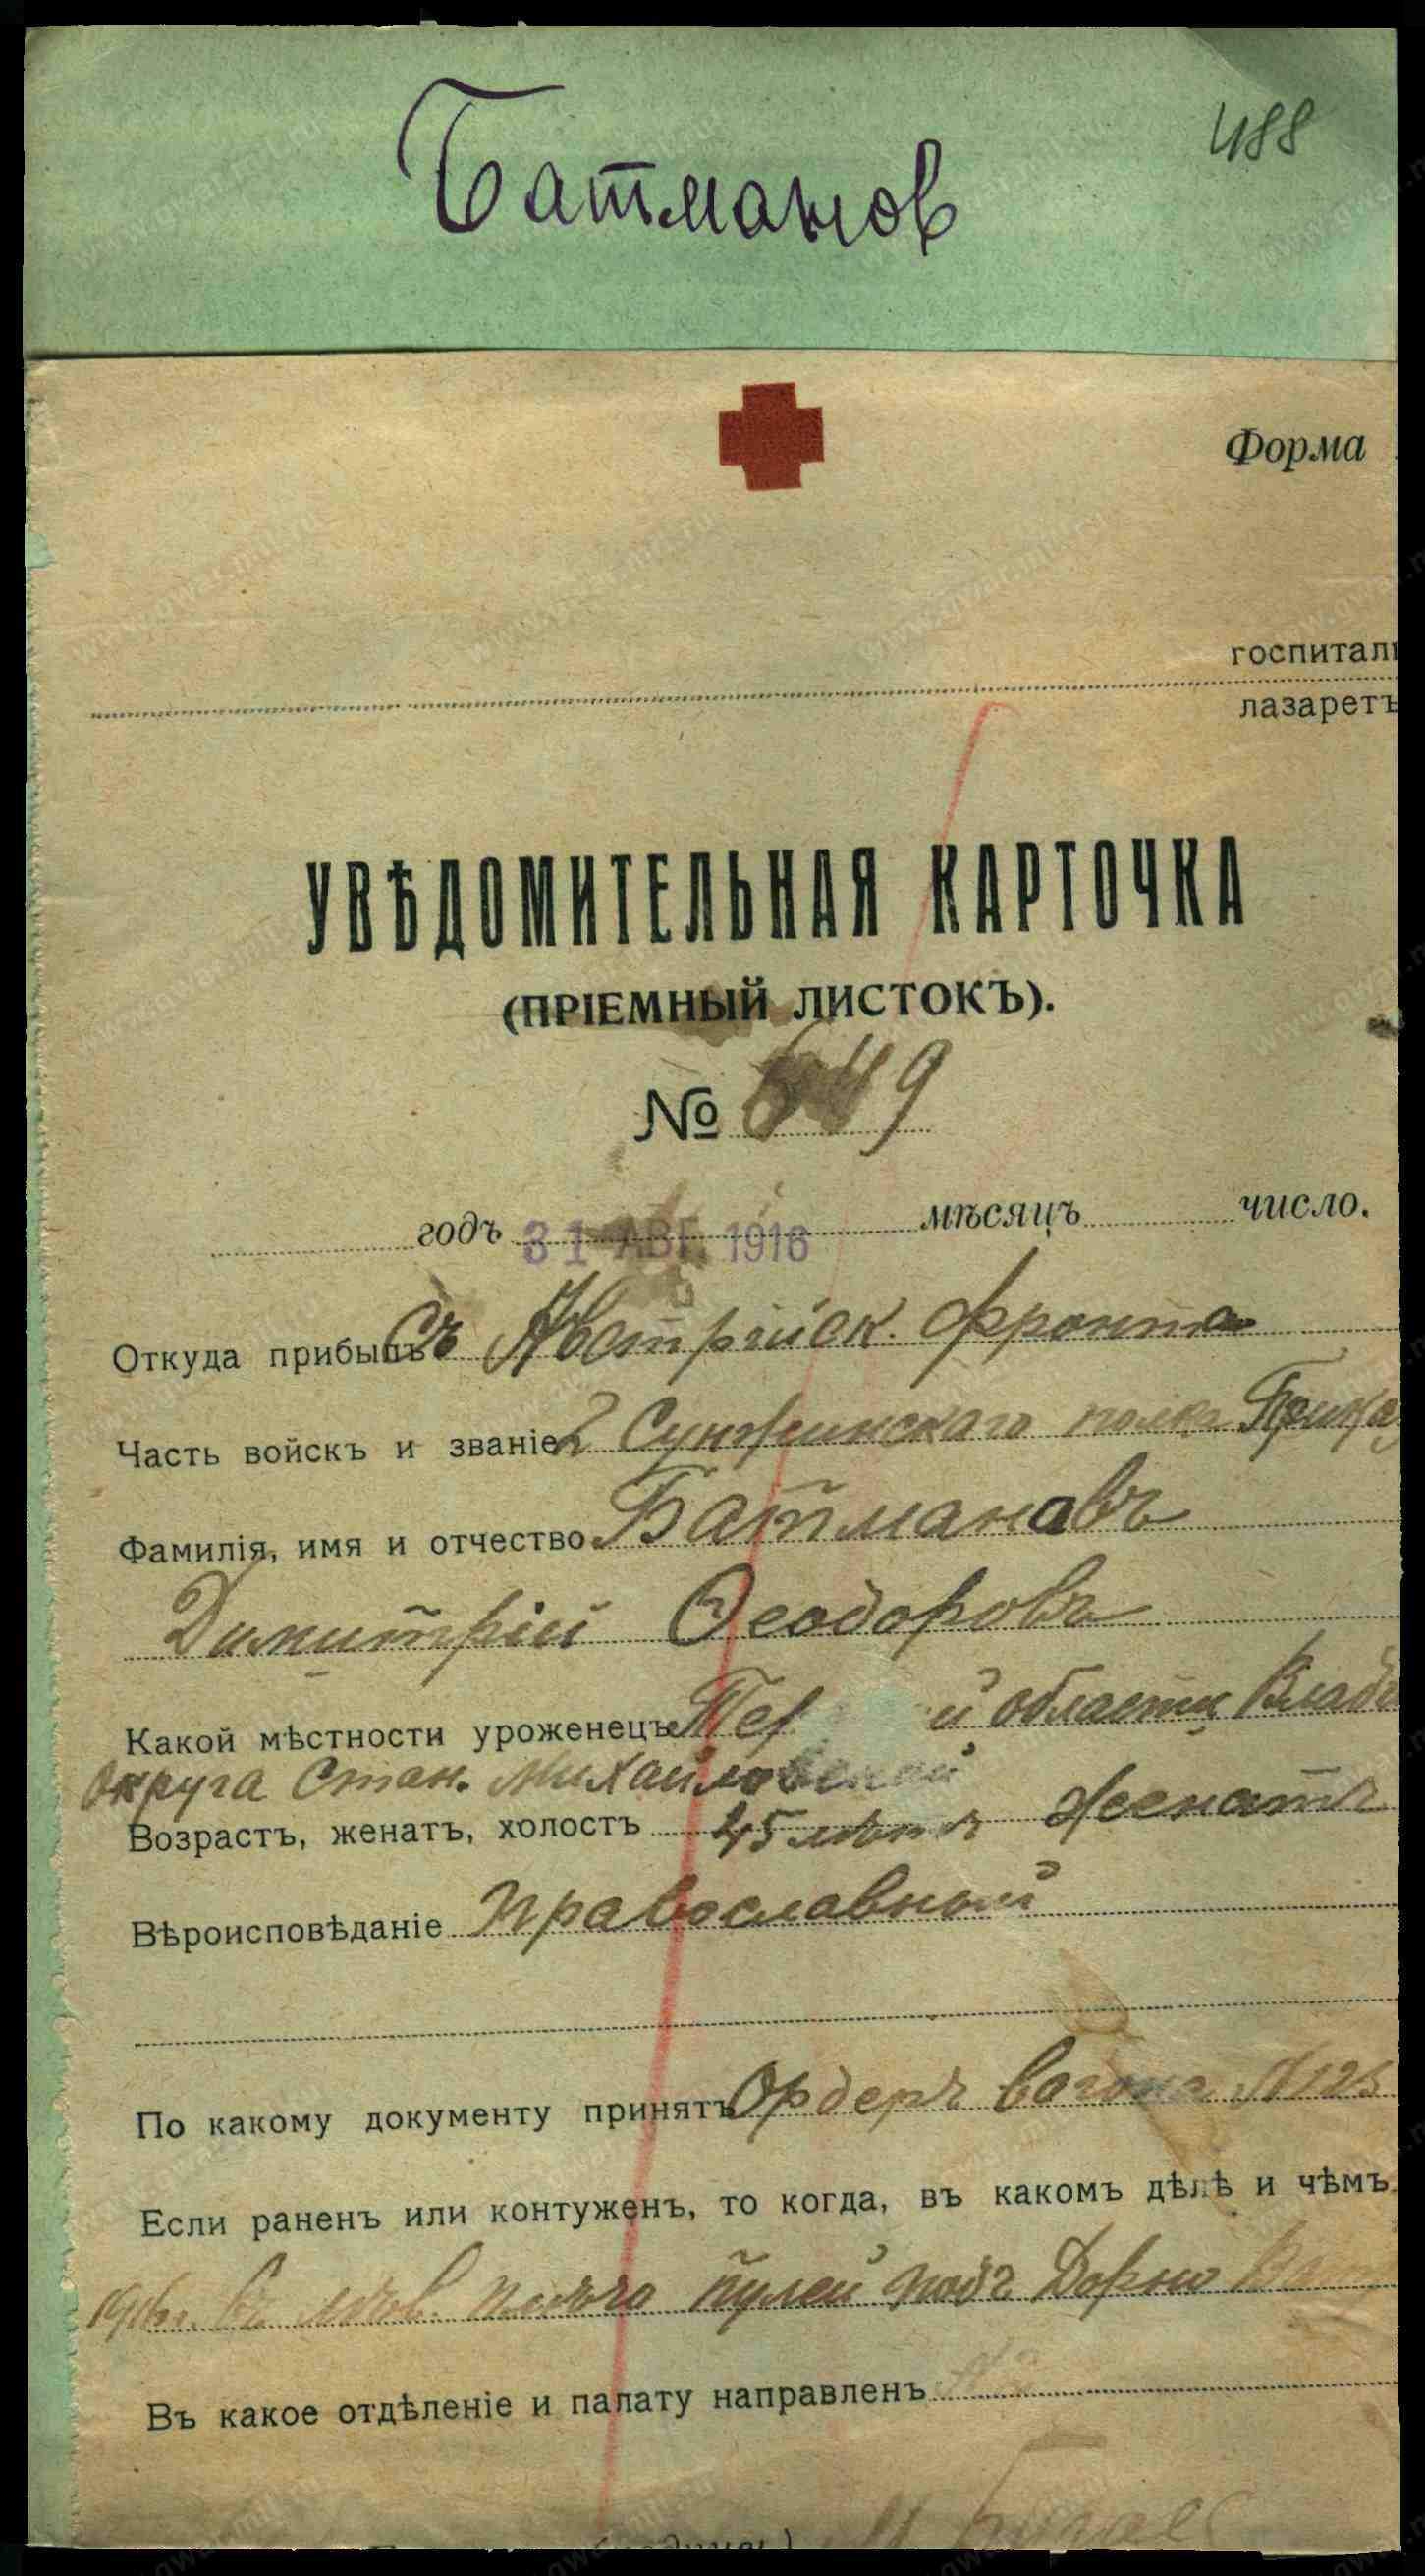 Батманов
488
Форма
госпитал
лазаретъ
УВѢДОМИТЕЛЬНАЯ КАРТОЧКА
(ПРІЕМНЫЙ ЛИСТОКЪ).
№ 649
годъ 31 АВГ. 1916 мѣсяцъ число.
Откуда прибылъ Съ Австрійск. фронта
Часть войскъ и званіе 2 Сунженскаго полка
Фамилія, имя и отчество Батмановъ
Димитрій Ѳеодоровъ
Какой мѣстности уроженецъ Тер й области Влад
округа Стан. Михайловской
Возрастъ, женатъ, холостъ 45 лѣтъ женатъ
Вѣроисповѣданіе православный
По какому документу принятъ Ордеръ вагона №
Если раненъ или контуженъ, то когда, въ какомъ дѣлѣ и чѣмъ
1916г. плечо пулей подъ Дорно
Въ какое отдѣленіе и палату направленъ